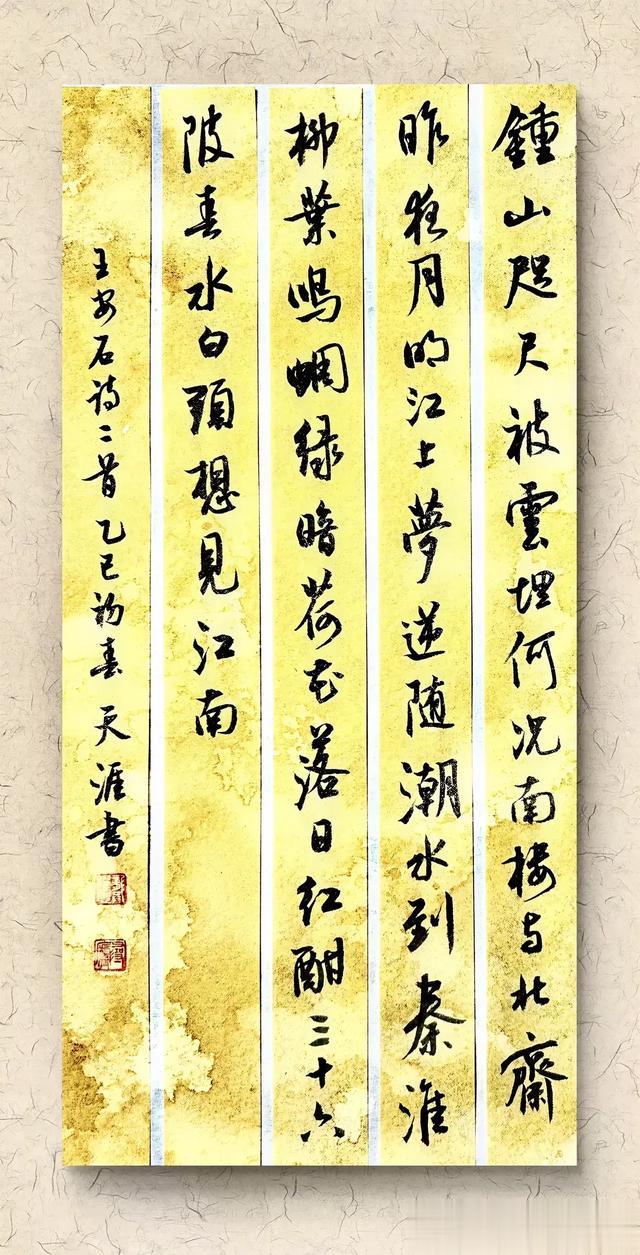 鍾山咫尺被雲埋何况南楼与北齋
昨夜月明江上夢逆随潮水到秦淮
柳葉鸣蜩绿暗荷花落日红酣三十六
陂春水白頭想見江南
王安石诗二首乙巳初春天涯書